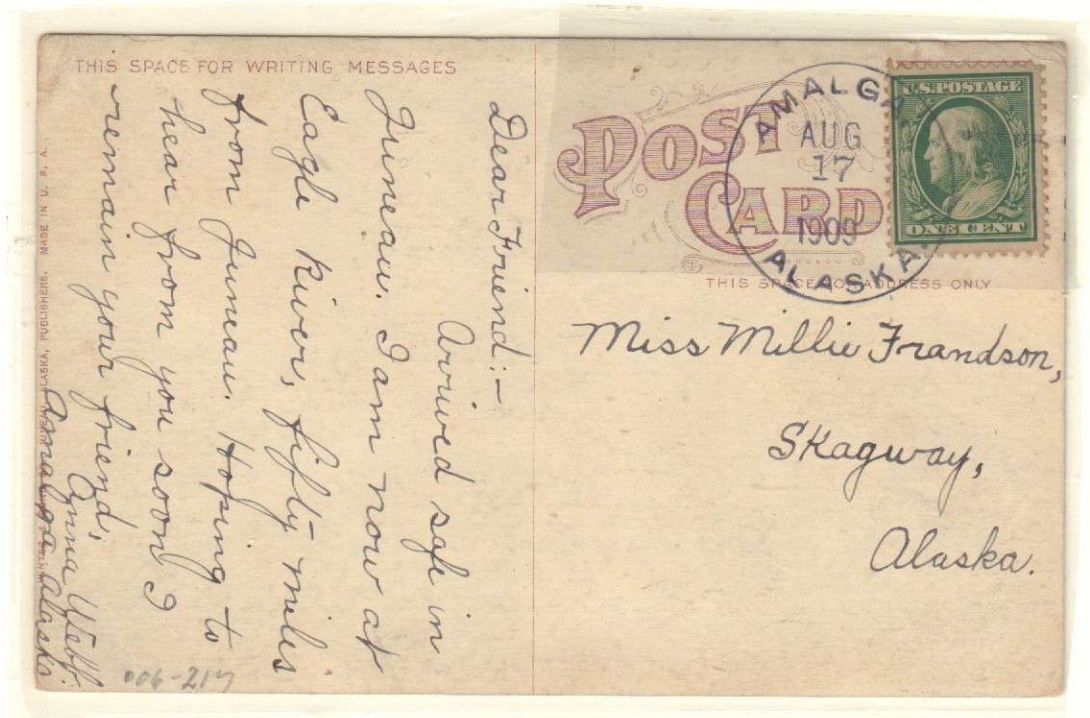 THIS SPACE FOR WRITING MESSAGES
Dear Friend:—
Arrived safe in
Juneau. I am now at
Eagle River, fifty miles
from Juneau. Hoping to
hear from you soon I
remain your friend,
Anna Webb.
Amalga Alaska
ALASKA, PUBLISHERS. MADE IN U. S. A.
006-217
POST
CARD
AMALGA
AUG
17
1909
ALASKA.
U.S. POSTAGE
ONE CENT
THIS SPACE FOR ADDRESS ONLY
Miss Millie Frandson,
Skagway,
Alaska.